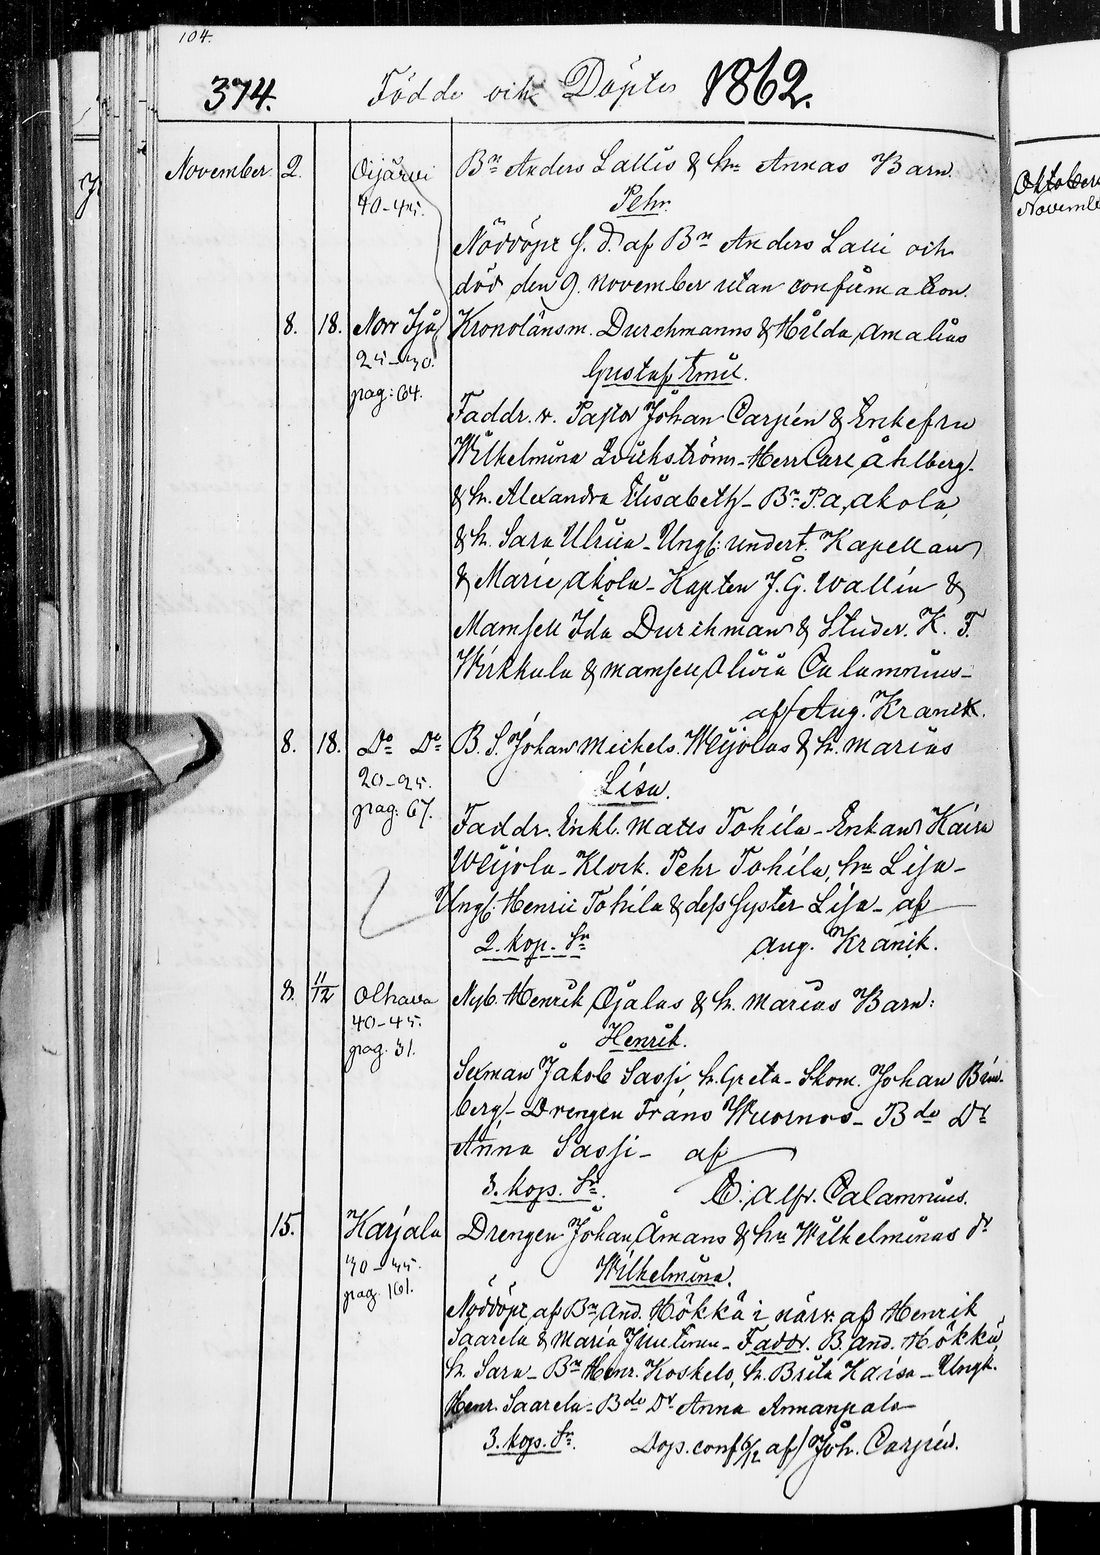 104.
374. Födde och Döpte 1862.
November 2. Oijärvi Bn Anders Lallis & hu Annas Barn.
40-45. Pehr.
Nöddöpt s. d. af Bn Anders Lalli och
död den 9. November utan confirmation.
8. 18. Norr Ijå Kronolänsm. Durchmanns & Hilda Amalias
25-30. Gustaf Emil.
pag: 64.
Faddr. v. Pastor Johan Carpén & Enkefru
Wilhelmina - Herr Carl Åhlberg
& h. Alexandra Elisabeth - Bn P. a, akola,
& h. Sara Ulrica - Ungf. undert. Kapellan
& Maria akola - Kapten J. G. Wallin &
Mamsell Ida Durchman & Studer. K. F.
Wirkkula & mamsell Olivia Calamnius -
af Aug. Kranck.
8. 18. Do Do B. S. Johan Michels. Weijolas & h. Marias
20-25. Lisa.
pag. 67.
Faddr. Enkl. Matts Tohila - Enkan Kaisa
Weijola - Klock. Pehr Tohila, hu Lisa -
Ungf. Henric Tohila & dess syster Lisa - af
2. kop. Sn Aug. Kranck.
8. 11/12 Olhava Nyb. Henrik Ojalas & h. Marias Barn:
40-45. Henrik.
pag. 31.
Sexman Jakob Sassi h. Greta - Skom. Johan Brin-
berg - Drengen Frans Wuornos - Bde Dr
Anna Sassi - af
3. kop. Sn. C: Alfr. Calamnius.
15. Karjala Drengen Johan Åmans & hu Wilhelminas dr
30-35. Wilhelmina.
pag. 161.
Nöddöpt af Bn And. Hökkä i närv. af Henrik
Saarela & Maria Juutinen - Faddr. B. And. Hökkä,
h. Sara - Bn Henr. Koskelo, h. Brita Kaisa - Ungk.
Henr. Saarela - Bde Dr Anna Annanpalo
3. kop. Sn. Dop. conf. 6/12 af Joh. Carpén.
Oktober
Novemb